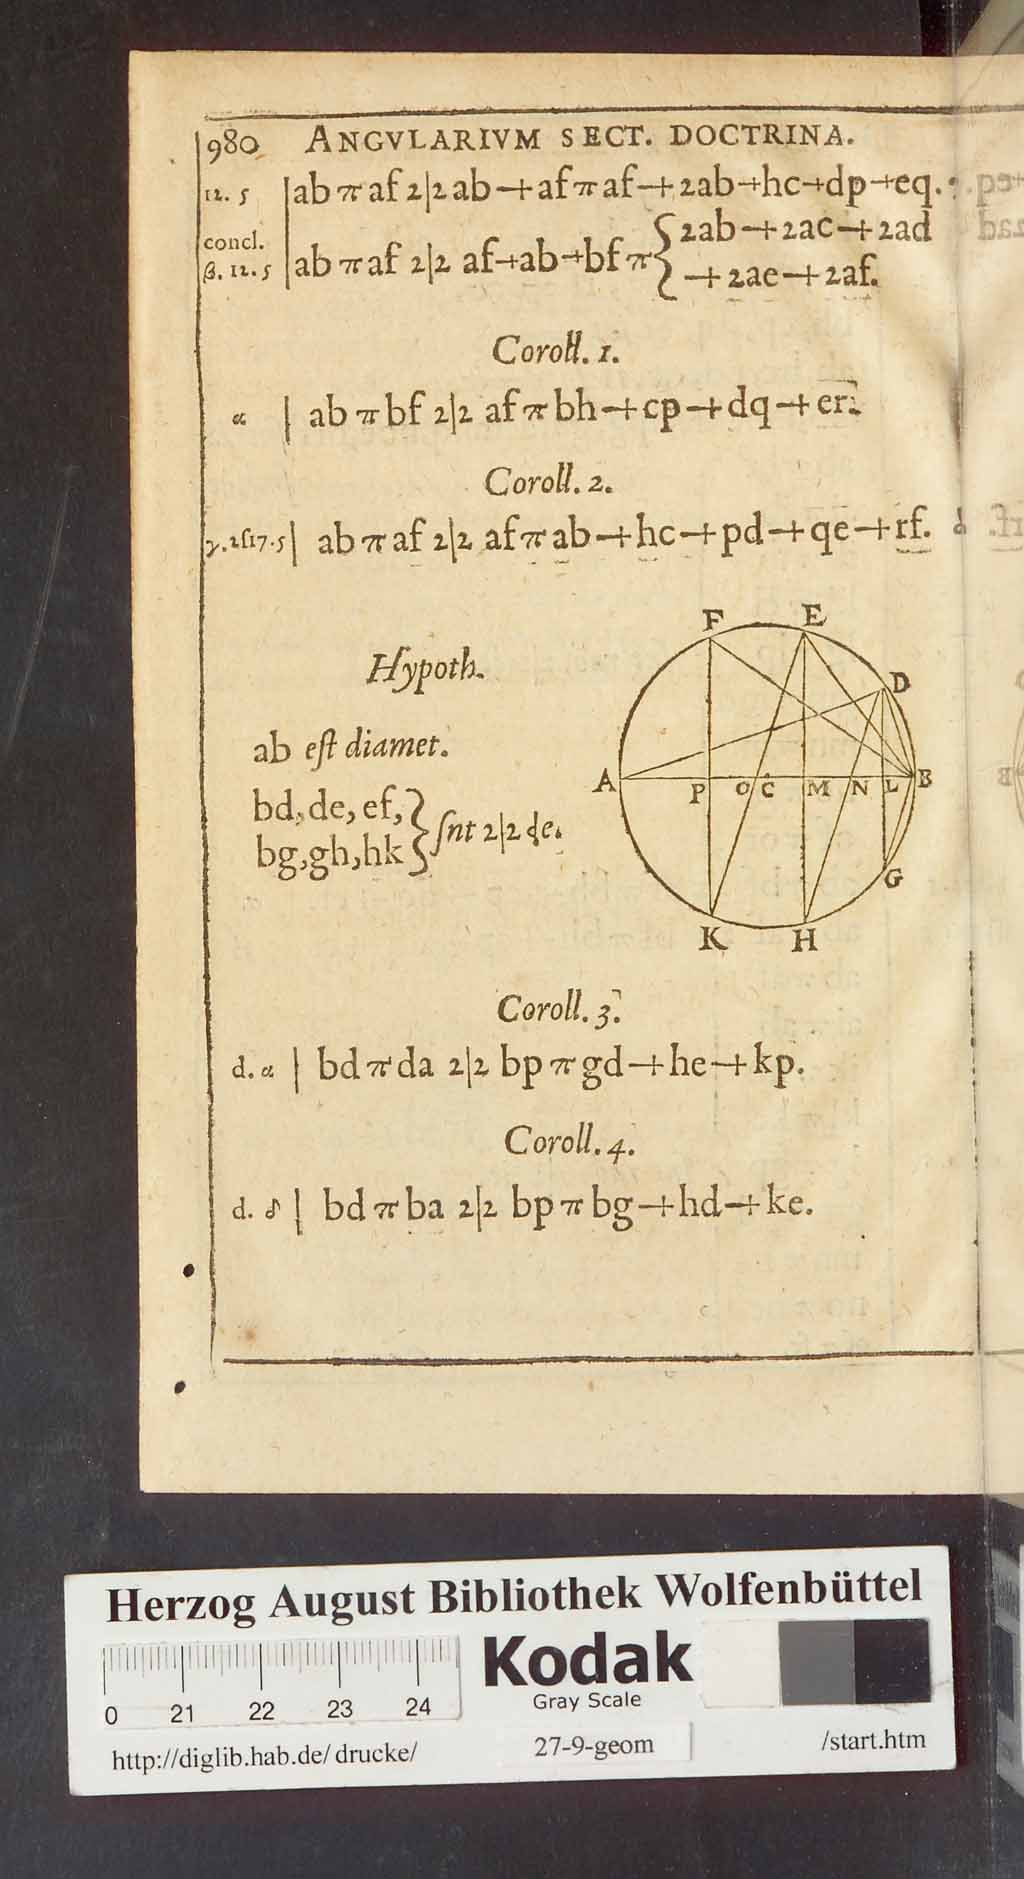 980 ANGVLARIVM SECT. DOCTRINA.
12. 5 | ab π af 2|2 ab + af π af + 2ab + hc + dp + eq.
concl. β. 12. 5 | ab π af 2|2 af + ab + bf π { 2ab + 2ac + 2ad
+ 2ae + 2af.
Coroll. 1.
α | ab π bf 2|2 af π bh + cp + dq + er.
Coroll. 2.
γ. 2ſ17. 5 | ab π af 2|2 af π ab + hc + pd + qe + rf.
F E
D
Hypoth.
ab eſt diamet.
A P O C M N L B
bd, de, ef, }
bg, gh, hk } ſnt 2|2 de.
G
K H
Coroll. 3.
d. α | bd π da 2|2 bp π gd + he + kp.
Coroll. 4.
d. δ | bd π ba 2|2 bp π bg + hd + ke.
Herzog August Bibliothek Wolfenbüttel
Kodak
Gray Scale
0 21 22 23 24
http://diglib.hab.de/drucke/ 27-9-geom /start.htm